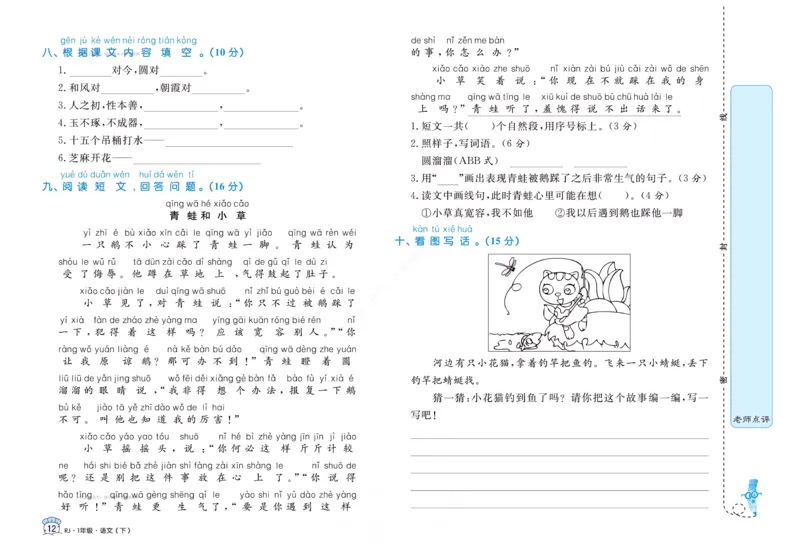 gēn jù kè wén nèi róng tián kòng
八、根据课文内容填空。(10分)
1.________对今,圆对________。
2.和风对__________,朝霞对__________。
3.人之初,性本善,______________,______________。
4.玉不琢,不成器,______________,______________。
5.十五个吊桶打水——
6.芝麻开花——
yuè dú duǎn wén huí dá wèn tí
九、阅读短文,回答问题。(16分)
qīng wā hé xiǎo cǎo
青蛙和小草
yì zhī é bù xiǎo xīn cǎi le qīng wā yì jiǎo qīng wā rèn wéi
一只鹅不小心踩了青蛙一脚。青蛙认为
shòu le wǔ rǔ tā dūn zài cǎo dì shàng qì de gǔ qǐ le dù zi
受了侮辱。他蹲在草地上,气得鼓起了肚子。
xiǎo cǎo jiàn le duì qīng wā shuō nǐ zhǐ bú guò bèi é cǎi le
小草见了,对青蛙说:“你只不过被鹅踩了
yí xià fàn de zháo zhè yàng ma yīng gāi kuān róng bié rén nǐ
一下,犯得着这样吗?应该宽容别人。”“你
ràng wǒ yuán liàng é nà kě bàn bú dào qīng wā dèng zhe yuán
让我原谅鹅?那可办不到!”青蛙瞪着圆
liū liū de yǎn jing shuō wǒ fēi děi xiǎng gè bàn fǎ bào fù yí xià é
溜溜的眼睛说,“我非得想个办法,报复一下鹅
bù kě jiào tā yě zhī dào wǒ de lì hai
不可。叫他也知道我的厉害!”
xiǎo cǎo yáo yao tóu shuō nǐ hé bì zhè yàng jīn jīn jì jiào
小草摇摇头,说:“你何必这样斤斤计较
ne hái shi bié bǎ zhè jiàn shì fàng zài xīn shàng le nǐ shuō de
呢?还是别把这件事放在心上了。”“你说得
hǎo tīng qīng wā gèng shēng qì le yào shi nǐ yù dào zhè yàng
好听!”青蛙更生气了,“要是你遇到这样
12 RJ·1年级·语文(下)
de shì nǐ zěn me bàn
的事,你怎么办?”
xiǎo cǎo xiào zhe shuō nǐ xiàn zài bú jiù cǎi zài wǒ de shēn
小草笑着说:“你现在不就踩在我的身
shàng ma qīng wā tīng le xiū kuì de shuō bù chū huà lái le
上吗?”青蛙听了,羞愧得说不出话来了。
1.短文一共( )个自然段,用序号标上。(3分)
2.照样子,写词语。(6分)
圆溜溜(ABB式) __________ __________
3.用“____”画出表现青蛙被鹅踩了之后非常生气的句子。(3分)
4.读文中画线句,此时青蛙心里可能在想( )。(4分)
①小草真宽容,我不如他 ②我以后遇到鹅也踩他一脚
kàn tú xiě huà
十、看图写话。(15分)
河边有只小花猫,拿着钓竿把鱼钓。飞来一只小蜻蜓,丢下
钓竿把蜻蜓找。
猜一猜:小花猫钓到鱼了吗?请你把这个故事编一编,写一
写吧!
线
封
密
老师点评